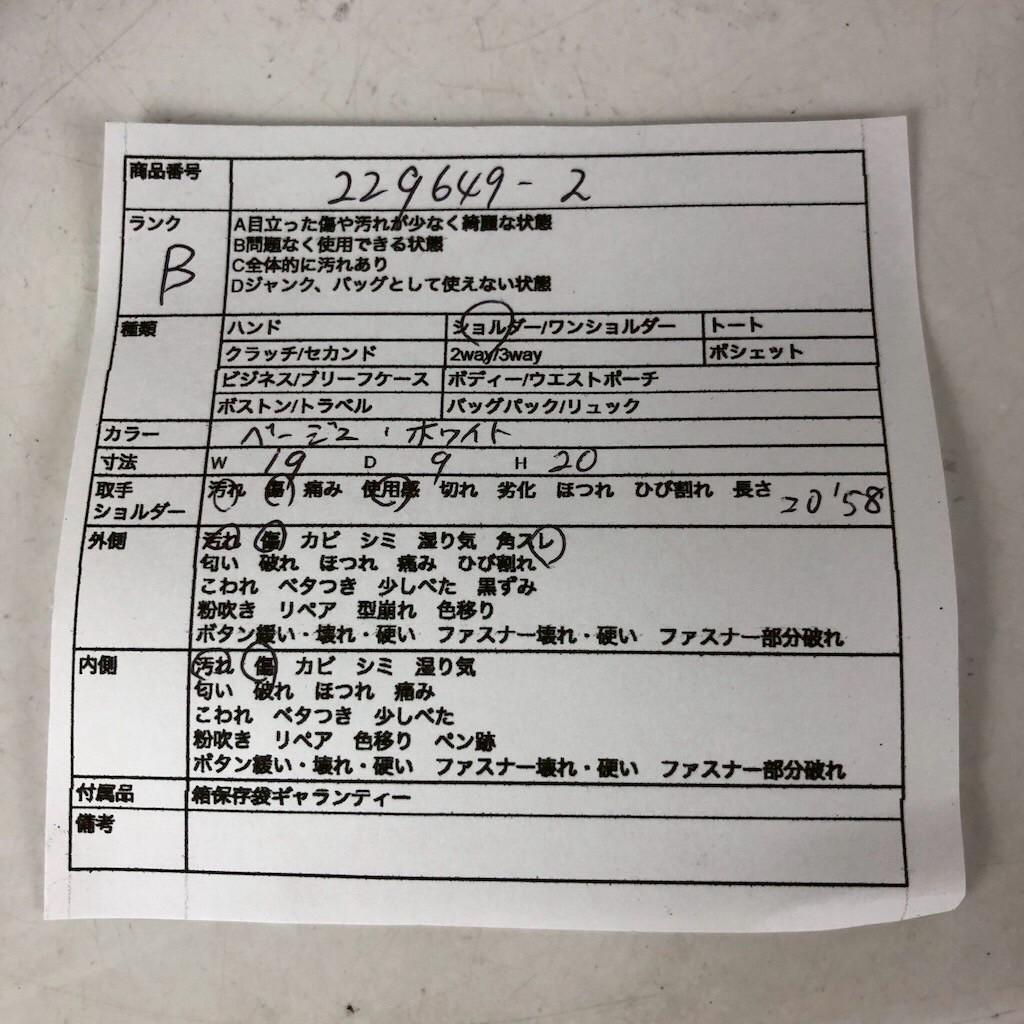 商品番号 229649-2
ランク A目立った傷や汚れが少なく綺麗な状態
B B問題なく使用できる状態
C全体的に汚れあり
Dジャンク、バッグとして使えない状態
種類 ハンド ショルダー/ワンショルダー トート
クラッチ/セカンド 2way/3way ポシェット
ビジネス/ブリーフケース ボディー/ウエストポーチ
ボストン/トラベル バッグパック/リュック
カラー ベージュ・ホワイト
寸法 W 19 D 9 H 20
取手 汚れ 傷 痛み 使用感 切れ 劣化 ほつれ ひび割れ 長さ
ショルダー 20'58
外側 汚れ 傷 カビ シミ 湿り気 角スレ
匂い 破れ ほつれ 痛み ひび割れ
こわれ ベタつき 少しべた 黒ずみ
粉吹き リペア 型崩れ 色移り
ボタン緩い・壊れ・硬い ファスナー壊れ・硬い ファスナー部分破れ
内側 汚れ 傷 カビ シミ 湿り気
匂い 破れ ほつれ 痛み
こわれ ベタつき 少しべた
粉吹き リペア 色移り ペン跡
ボタン緩い・壊れ・硬い ファスナー壊れ・硬い ファスナー部分破れ
付属品 箱保存袋ギャランティー
備考